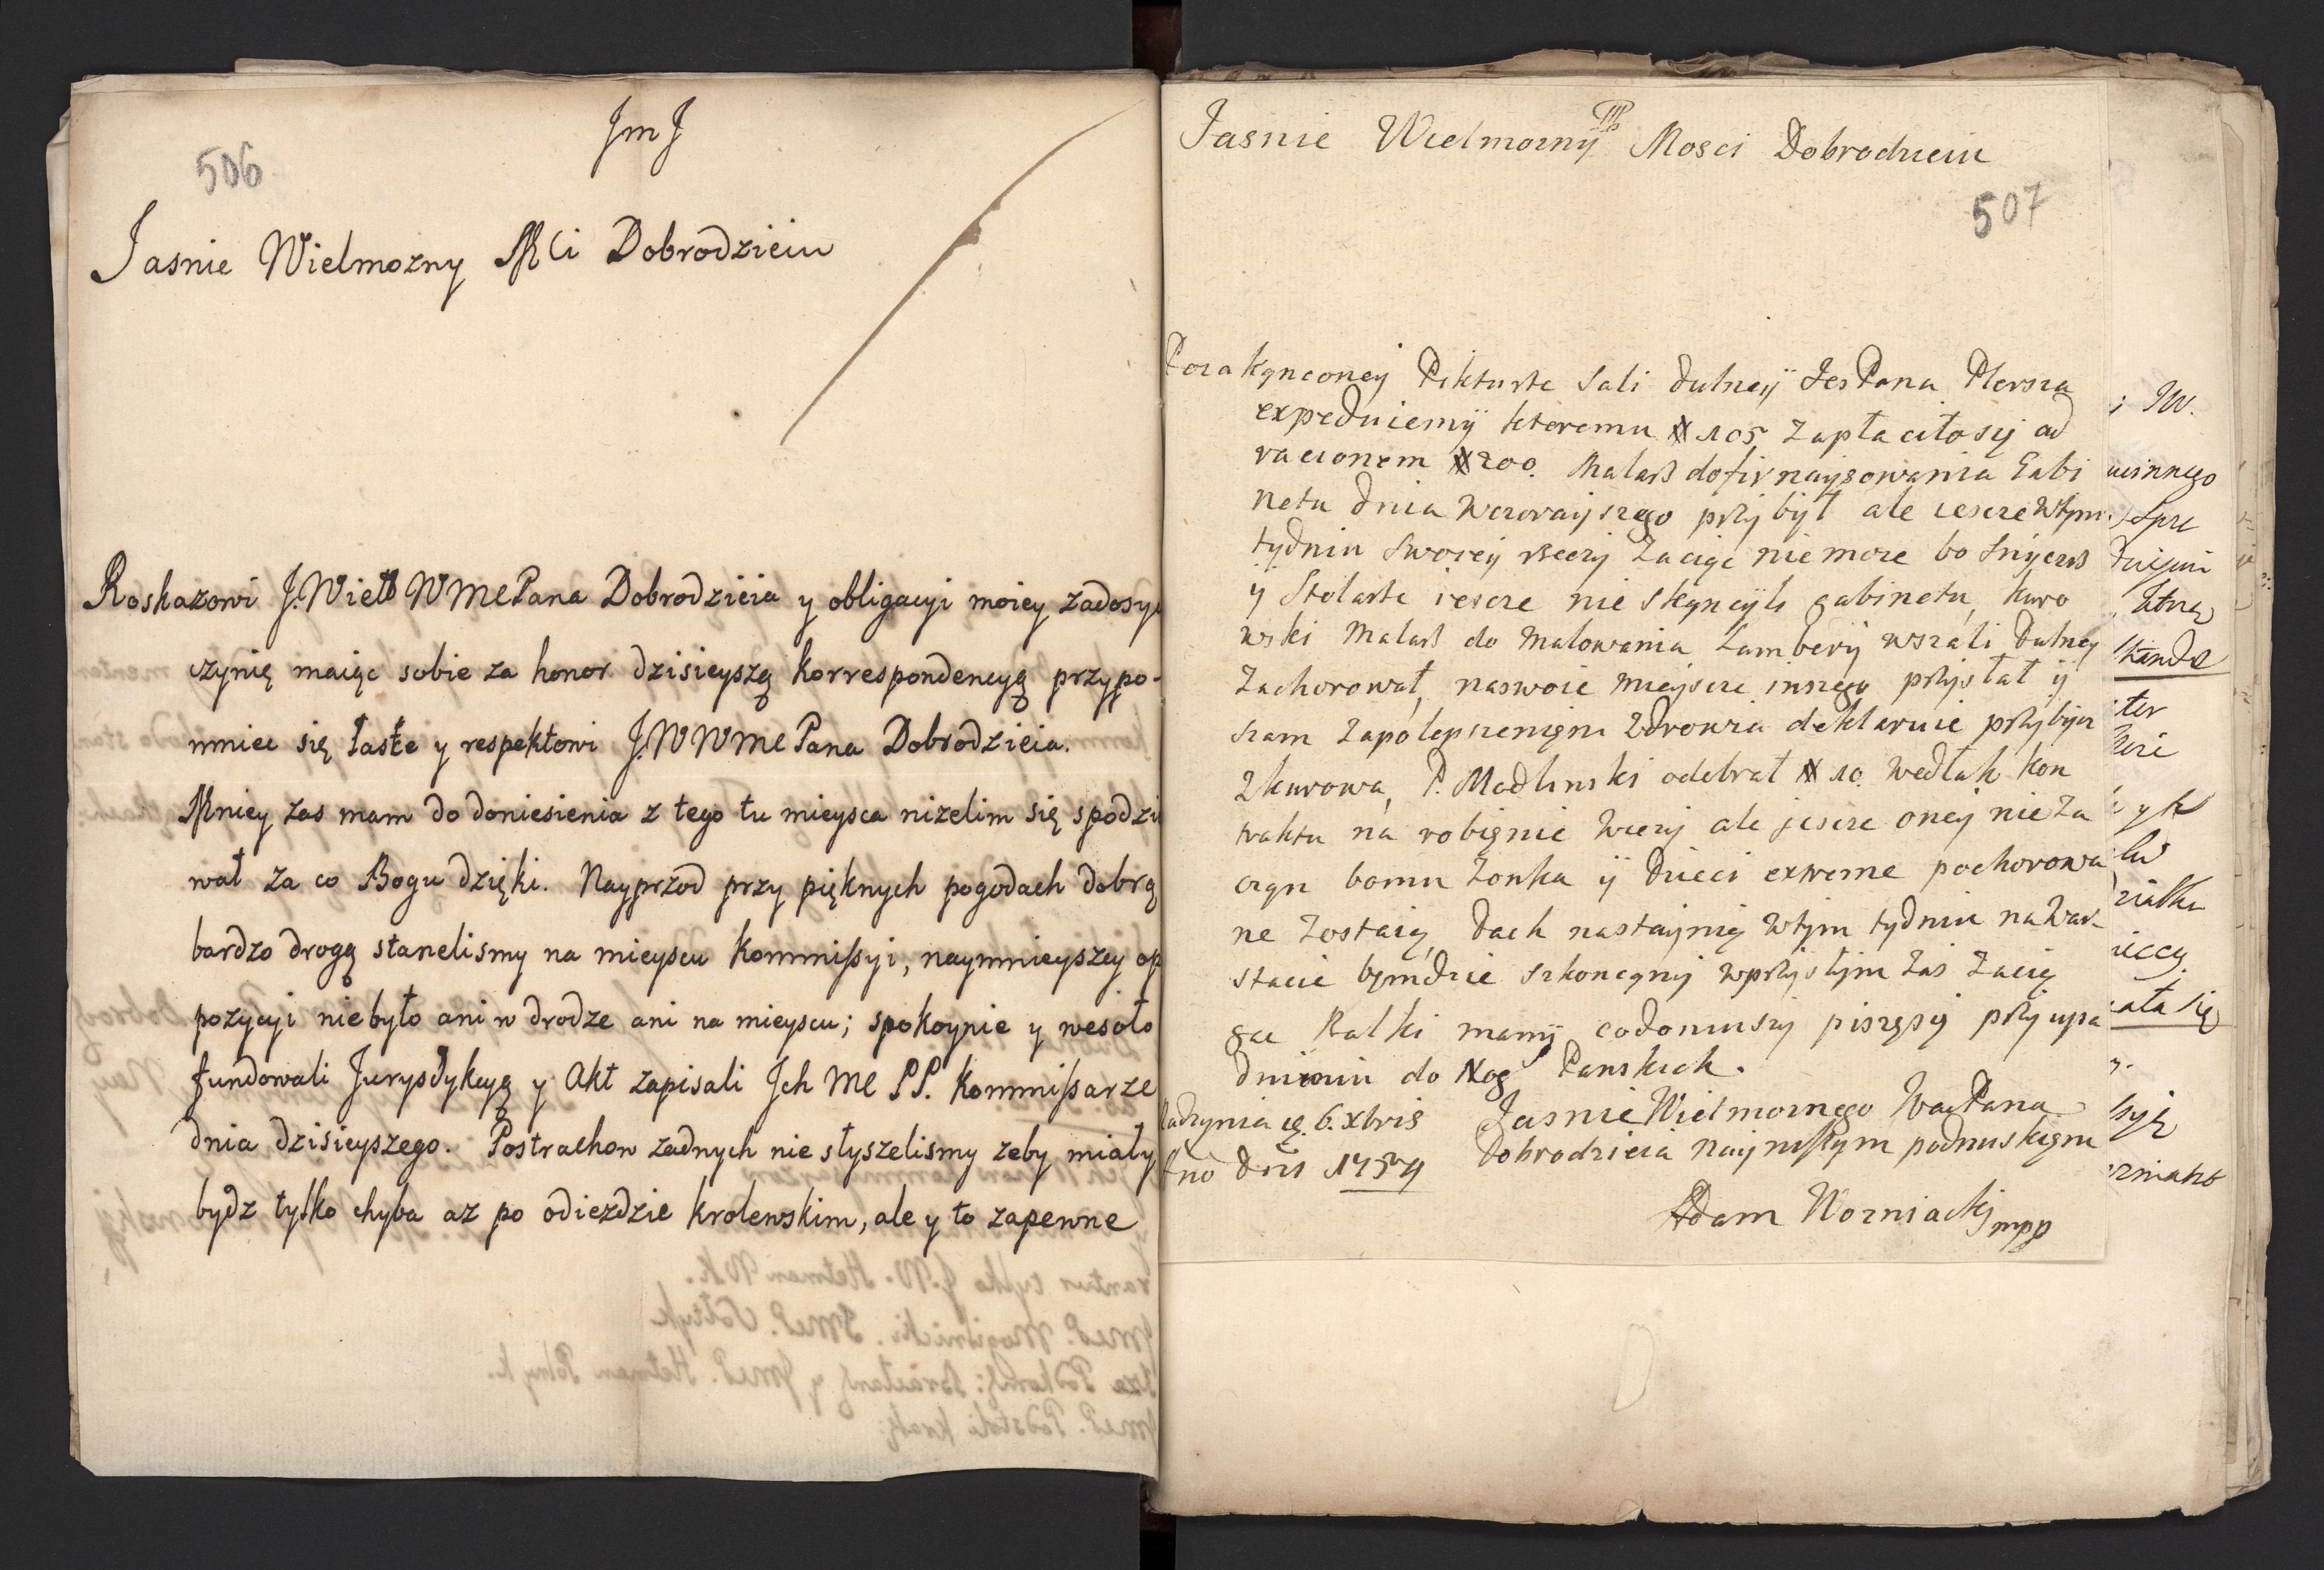 JmJ
506
Jasnie Wielmozny Mci Dobrodzieiu
Roskazowi J. Wiel WMCPana Dobrodzieia y obligacyi moiey zadosyc
czynię maiąc sobie za honor dzisieyszą korrespondencyą przypo-
mniec się łasce y respektowi J.WWMC Pana Dobrodzieia.
Mniey zas mam do doniesienia z tego tu mieysca nizelim się spodzie
wał za co Bogu dzięki. Nayprzod przy pięknych pogodach dobrą
bardzo drogą stanelismy na mieyscu kommissyi, naymnieyszey op
pozycyi niebyło ani w drodze ani na mieyscu; spokoynie y wesoło
fundowali Jurysdykcyą y Akt zapisali Jch MC PP. kommissarze
dnia dzisieyszego. Postrachow zadnych nie słyszelismy zeby miały
bydz tylko chyba az po odiezdzie krolewskim, ale y to zapewne
Jasnie Wielmozny Mosci Dobrodzieiu
507
Pozakonconey Pikturze Sali dulney Jes Pana Plersza
expediuiemÿ ktoremu # 105 zapłaciło sij ad
racionem # 200. Malarz dofirnaysowania Gabi
netu dnia wczoraijszego przybył ale iescze wtym
tydniu Swoieij rzeczy Zaciąc niemoze bo Snycerz
ÿ Stolarze iescze nie skącyli gabinetu, Kuro
wski Malarz do Malowania Lambery wszali Dulney
Zachorował, naswoie miejsce inszego przystał ÿ
szam zapolepszeniem Zdrowia deklaruie przybycz
zkurowa, P. Madlinski odebrał # 10. wedłuk kon
traktu na robienie wiezy ale jescze oney nieza
czyn bomu Zonka ÿ Dzieci extreme pochorowa
ne Zostaią, Dach nastayniej wtym tydniu nawar
stacie będzie szkonczony wprzystym zas zacią
gac Kalki mamy codoniuszy piszęsię przy upa
dnieniu do Nog Panskich.
6. xbris JasnieWielmoznego WacPana
dnis 1754 Dobrodzieia nayniszym podnuskiem
Adam Wozniacki mpp
; JW.
uinnego
Spre
ter
yk
iecey
ała się